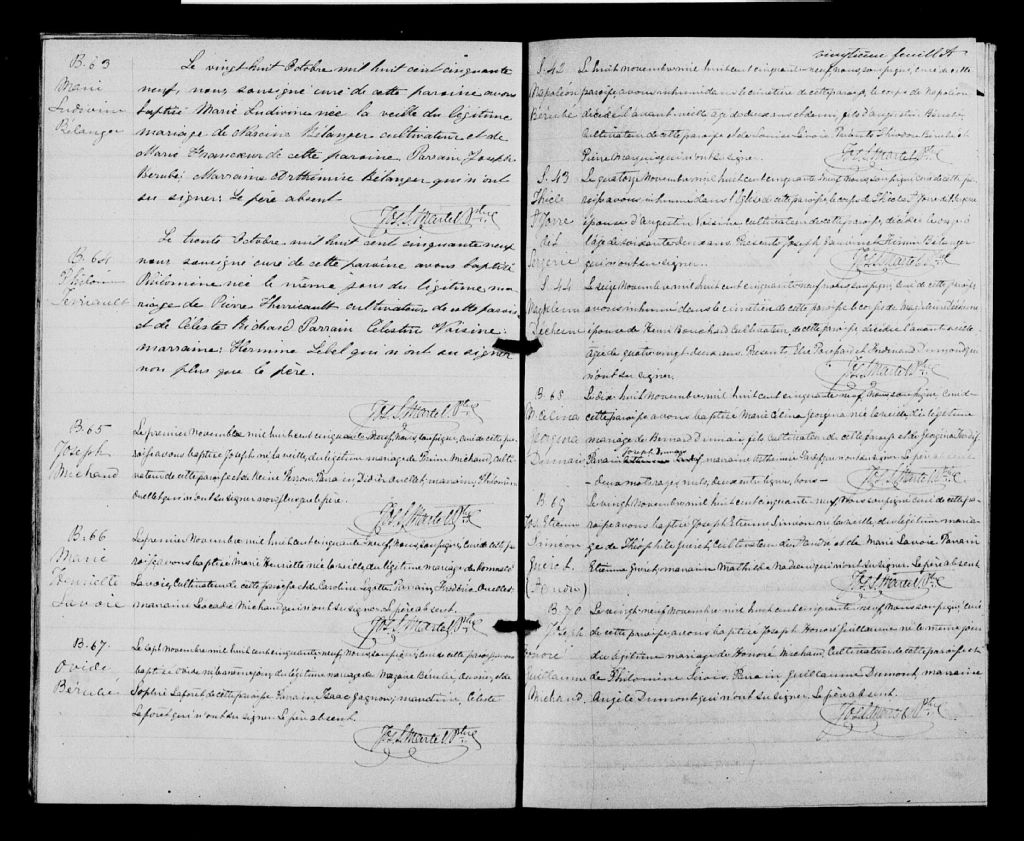 B. 63
Marie
Ludivine
Bélanger
Le vingt huit Octobre mil huit cent cinquante
neuf, nous sousigné curé de cette paroisse avons
baptisé Marie Ludivine née la veille du légitime
mariage de Bélanger cultivateur et de
Marie Francoeur de cette paroisse Parrain Joseph
Bérubé Marraine Arthémire Bélanger qui n'ont
su signer: Le père absent
Jos. S. Martel Ptre
B. 64
Philomine
Terriault
Le trente Octobre mil huit cent cinquante neuf
nous sousigné curé de cette paroisse avons baptisé
Philomine née le même jour du légitime ma-
riage de Pierre Therrieault cultivateur de cette paroisse
et de Céleste Richard Parrain Célestin Voisine:
marraine: Hermine Lebel qui n'ont su signer
non plus que le père.
Jos. S. Martel Ptre
B. 65
Joseph
Michaud
Le premier Novembre mil huit cent cinquante neuf, Nous, soussigné, curé de cette pa-
roisse avons baptisé Joseph né la veille, du légitime mariage de Michaud, Culti-
vateur de cette paroisse et de Reine Perron. Parrain Didier Ouellet marraine, Philomine
Ouellet qui n'ont su signer non plus que le père.
Jos. S. Martel Ptre
B. 66
Marie
Henriette
Lavoie
Le premier Novembre mil huit cent cinquante neuf, Nous, soussigné, Curé de cette pa-
roisse avons baptisé Marie Henriette née la veille du légitime mariage de
Lavoie, Cultivateur de cette paroisse et de Caroline Parrain, Frédéric Ouellet
marraine Léocadie Michaud qui n'ont su signer. Le père absent.
Jos. S. Martel Ptre
B. 67
Ovide
Bérubé
Le sept novembre mil huit cent cinquante neuf Nous soussigné, Curé de cette paroisse avons
baptisé Ovide né même jour du légitime mariage de Nazaire Bérubé et de
Sophie Laforet de cette paroisse Parrain Isaac Gagnon, marraine Céleste
Laforet qui n'ont su signer Le père absent.
Jos. S. Martel Ptre
vingtième feuillet
S. 42
Napoléon
Bérubé
Le huit novembre mil huit cent cinquante neuf, nous, soussigné, curé de cette
paroisse, avons inhumé dans le cimetière de cette paroisse, le corps de Napoléon
décédé l'avant veille âgé de deux ans et demi, fils d'Augustin Bérubé
Cultivateur de cette paroisse et de Présents et
Pierre qui n'ont su signer.
Jos. S. Martel Ptre
S. 43
Thècle
St Jorre
dit
Sergerie
Le quatorze Novembre mil huit cent cinquante neuf Nous soussigné Curé de cette pa-
roisse avons inhumé dans l'Eglise de cette paroisse le corps de Thècle St Jorre dit Sergerie
épouse d'Augustin Voisine cultivateur de cette paroisse, décédée
âgée de soixante deux ans. Présents Joseph et Firmin Bélanger
qui n'ont su signer.
Jos. S. Martel Ptre
S. 44
Magdeleine
Déchène
Le seize Novembre mil huit cent cinquante neuf, Nous, soussigné, Curé de cette paroisse,
avons inhumé dans le cimetière de cette paroisse le corps de Magdeleine Déchène
épouse de Henri Bouchard Cultivateur, de cette paroisse décédée l'avant veille
âgée de quatre vingt deux ans. Présents et Ferdinand Dumond qui
n'ont su signer.
Jos. S. Martel Ptre
B. 68
M. Célina
Georgina
Dumais
Le dix huit Novembre mil huit cent cinquante neuf, Nous soussigné, Curé de
cette paroisse avons baptisé Marie Célina Georgina née la veille, du légitime
mariage de Bernard Dumais, fils, Cultivateur de cette paroisse et de Georgina Tardif
Joseph Dumais
Parrain marraine Tardif qui n'ont su signer. Le père absent
- deux mots rayés nuls, deux entre lignes, bons -
Jos. S. Martel Ptre
B. 69
Jos. Etienne
Siméon
Guéret
(André)
Le vingt Novembre mil huit cent cinquante neuf, Nous, soussigné, curé de cette pa-
roisse avons baptisé Joseph Etienne Siméon né la veille du légitime maria-
ge de Théophile Guéret, Cultivateur de St André et de Marie Lavoie Parrain
Etienne Guéret, marraine Mathilde Nadeau qui n'ont su signer. Le père absent
Jos. S. Martel Ptre
B. 70
Joseph
Honoré
Guillaume
Michaud
Le vingt-neuf Novembre mil huit cent cinquante neuf, Nous soussigné, Curé
de cette paroisse avons baptisé Joseph Honoré Guillaume né le même jour
du légitime mariage de Honoré Michaud, Cultivateur de cette paroisse et
de Philomine Sirois. Parrain Guillaume Dumont, marraine
Angèle Dumont qui n'ont su signer. Le père absent.
Jos. S. Martel Ptre